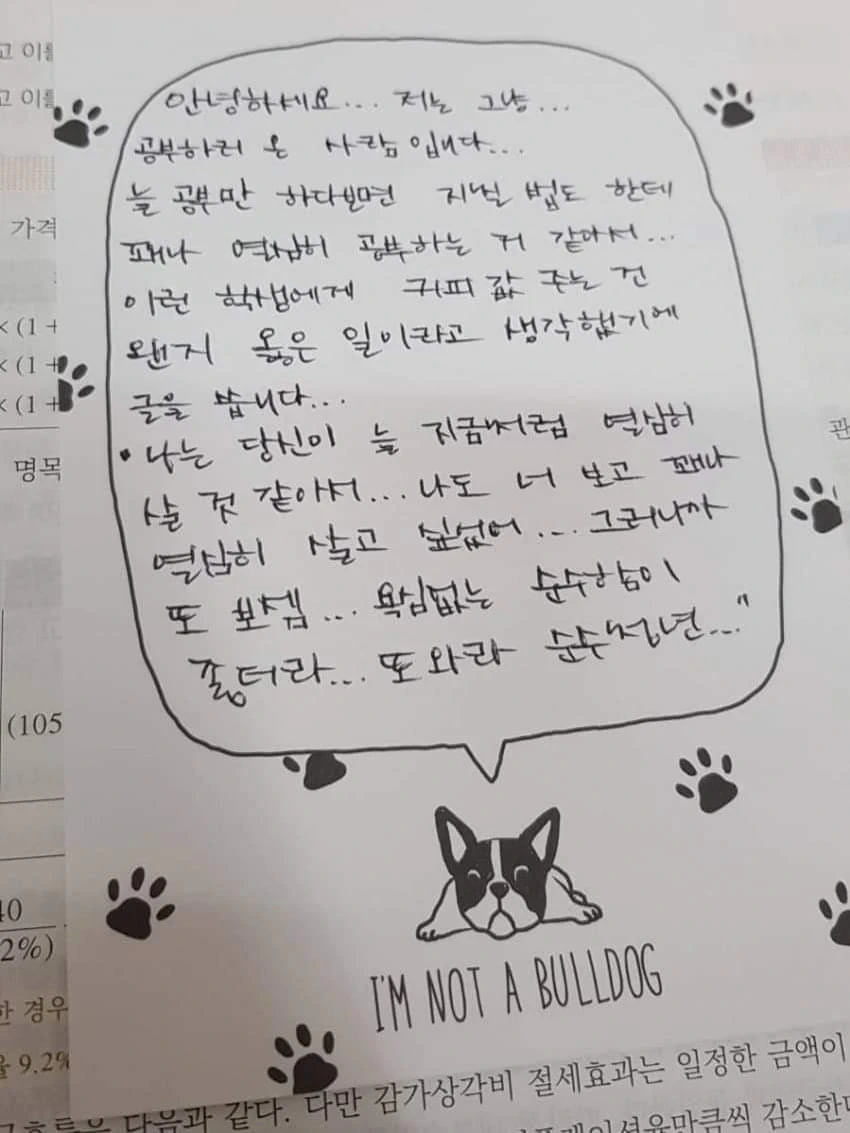 안녕하세요... 저는 그냥...
공부하러 온 사람입니다...
늘 공부만 하다보면 지칠 법도 한데
꽤나 열심히 공부하는 거 같아서...
이런 학생에게 커피 값 주는 건
왠지 옳은 일이라고 생각했기에
글을 씁니다...
• 나는 당신이 늘 지금처럼 열심히
살 것 같아서... 나도 너 보고 꽤나
열심히 살고 싶었어... 그러니까
또 보셈... 욕심없는 순수함이
좋더라... 또 와라 순수청년..."
I'M NOT A BULLDOG
고 이
고 이
가격
× (1 +
× (1 +
× (1 +
명목
관
(105
40
2%)
한 경우
율 9.2%
다음과 같다. 다만 감가상각비 절세효과는 일정한 금액이
감소한다